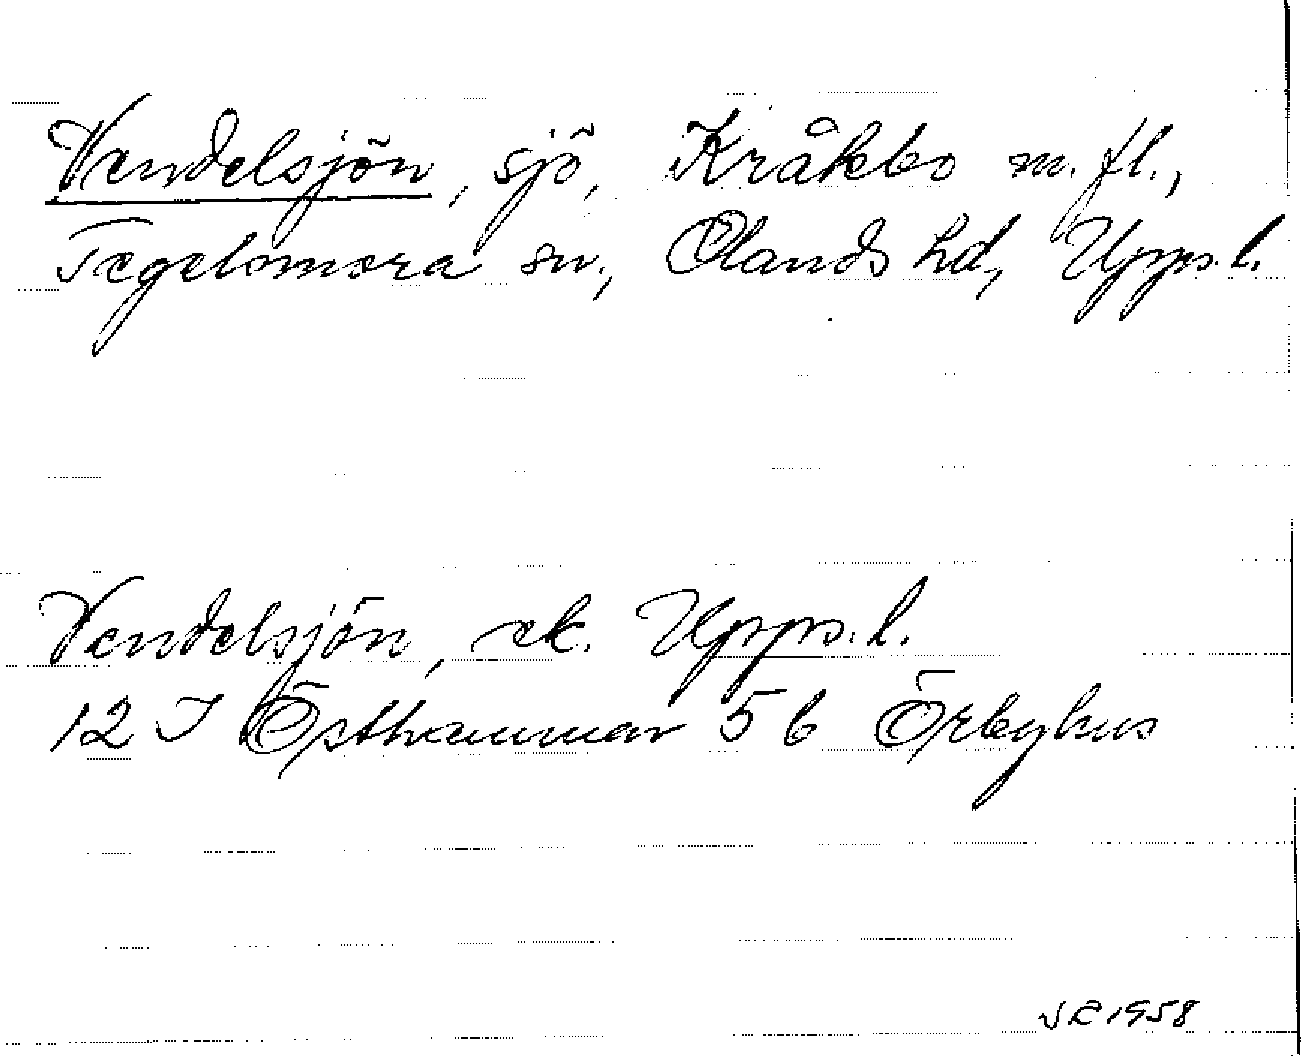 Vendelsjön, sjö, Kråkbo m. fl.,
Tegelsmora sn., Olands hd, Upps. l.
Vendelsjön, ek. Upps. l.
12 I Östhammar 5 b Örbyhus
1958